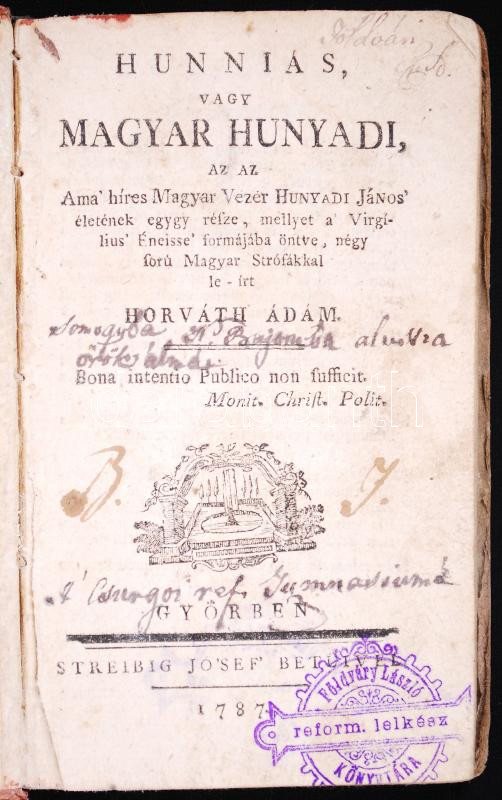 HUNNIÁS,
VAGY
MAGYAR HUNYADI,
AZ AZ
Ama' híres Magyar Vezér HUNYADI JÁNOS'
életének egygy réſze, mellyet a' Virgí-
lius' Éneisse' formájába öntve, négy
ſorú Magyar Strófákkal
le-írt
HORVÁTH ÁDÁM.
Somogyba N. Bajomba aluſſza
örök álmát
Bona intentio Publico non ſufficit.
Monit. Chriſt. Polit.
B. J.
A' Csurgoi ref. Gymnasiumé
GYŐRBEN
STREIBIG JO'SEF' BETŰIVEL
1787
Földváry László
reform. lelkész
KÖNYVTÁRA